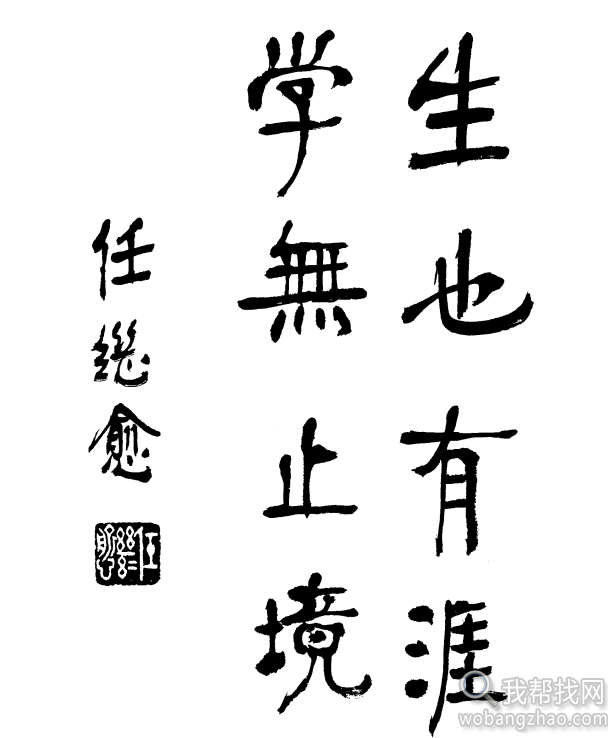 生也有涯
学無止境
任继愈
任继愈
我帮找网
wobangzhao.com